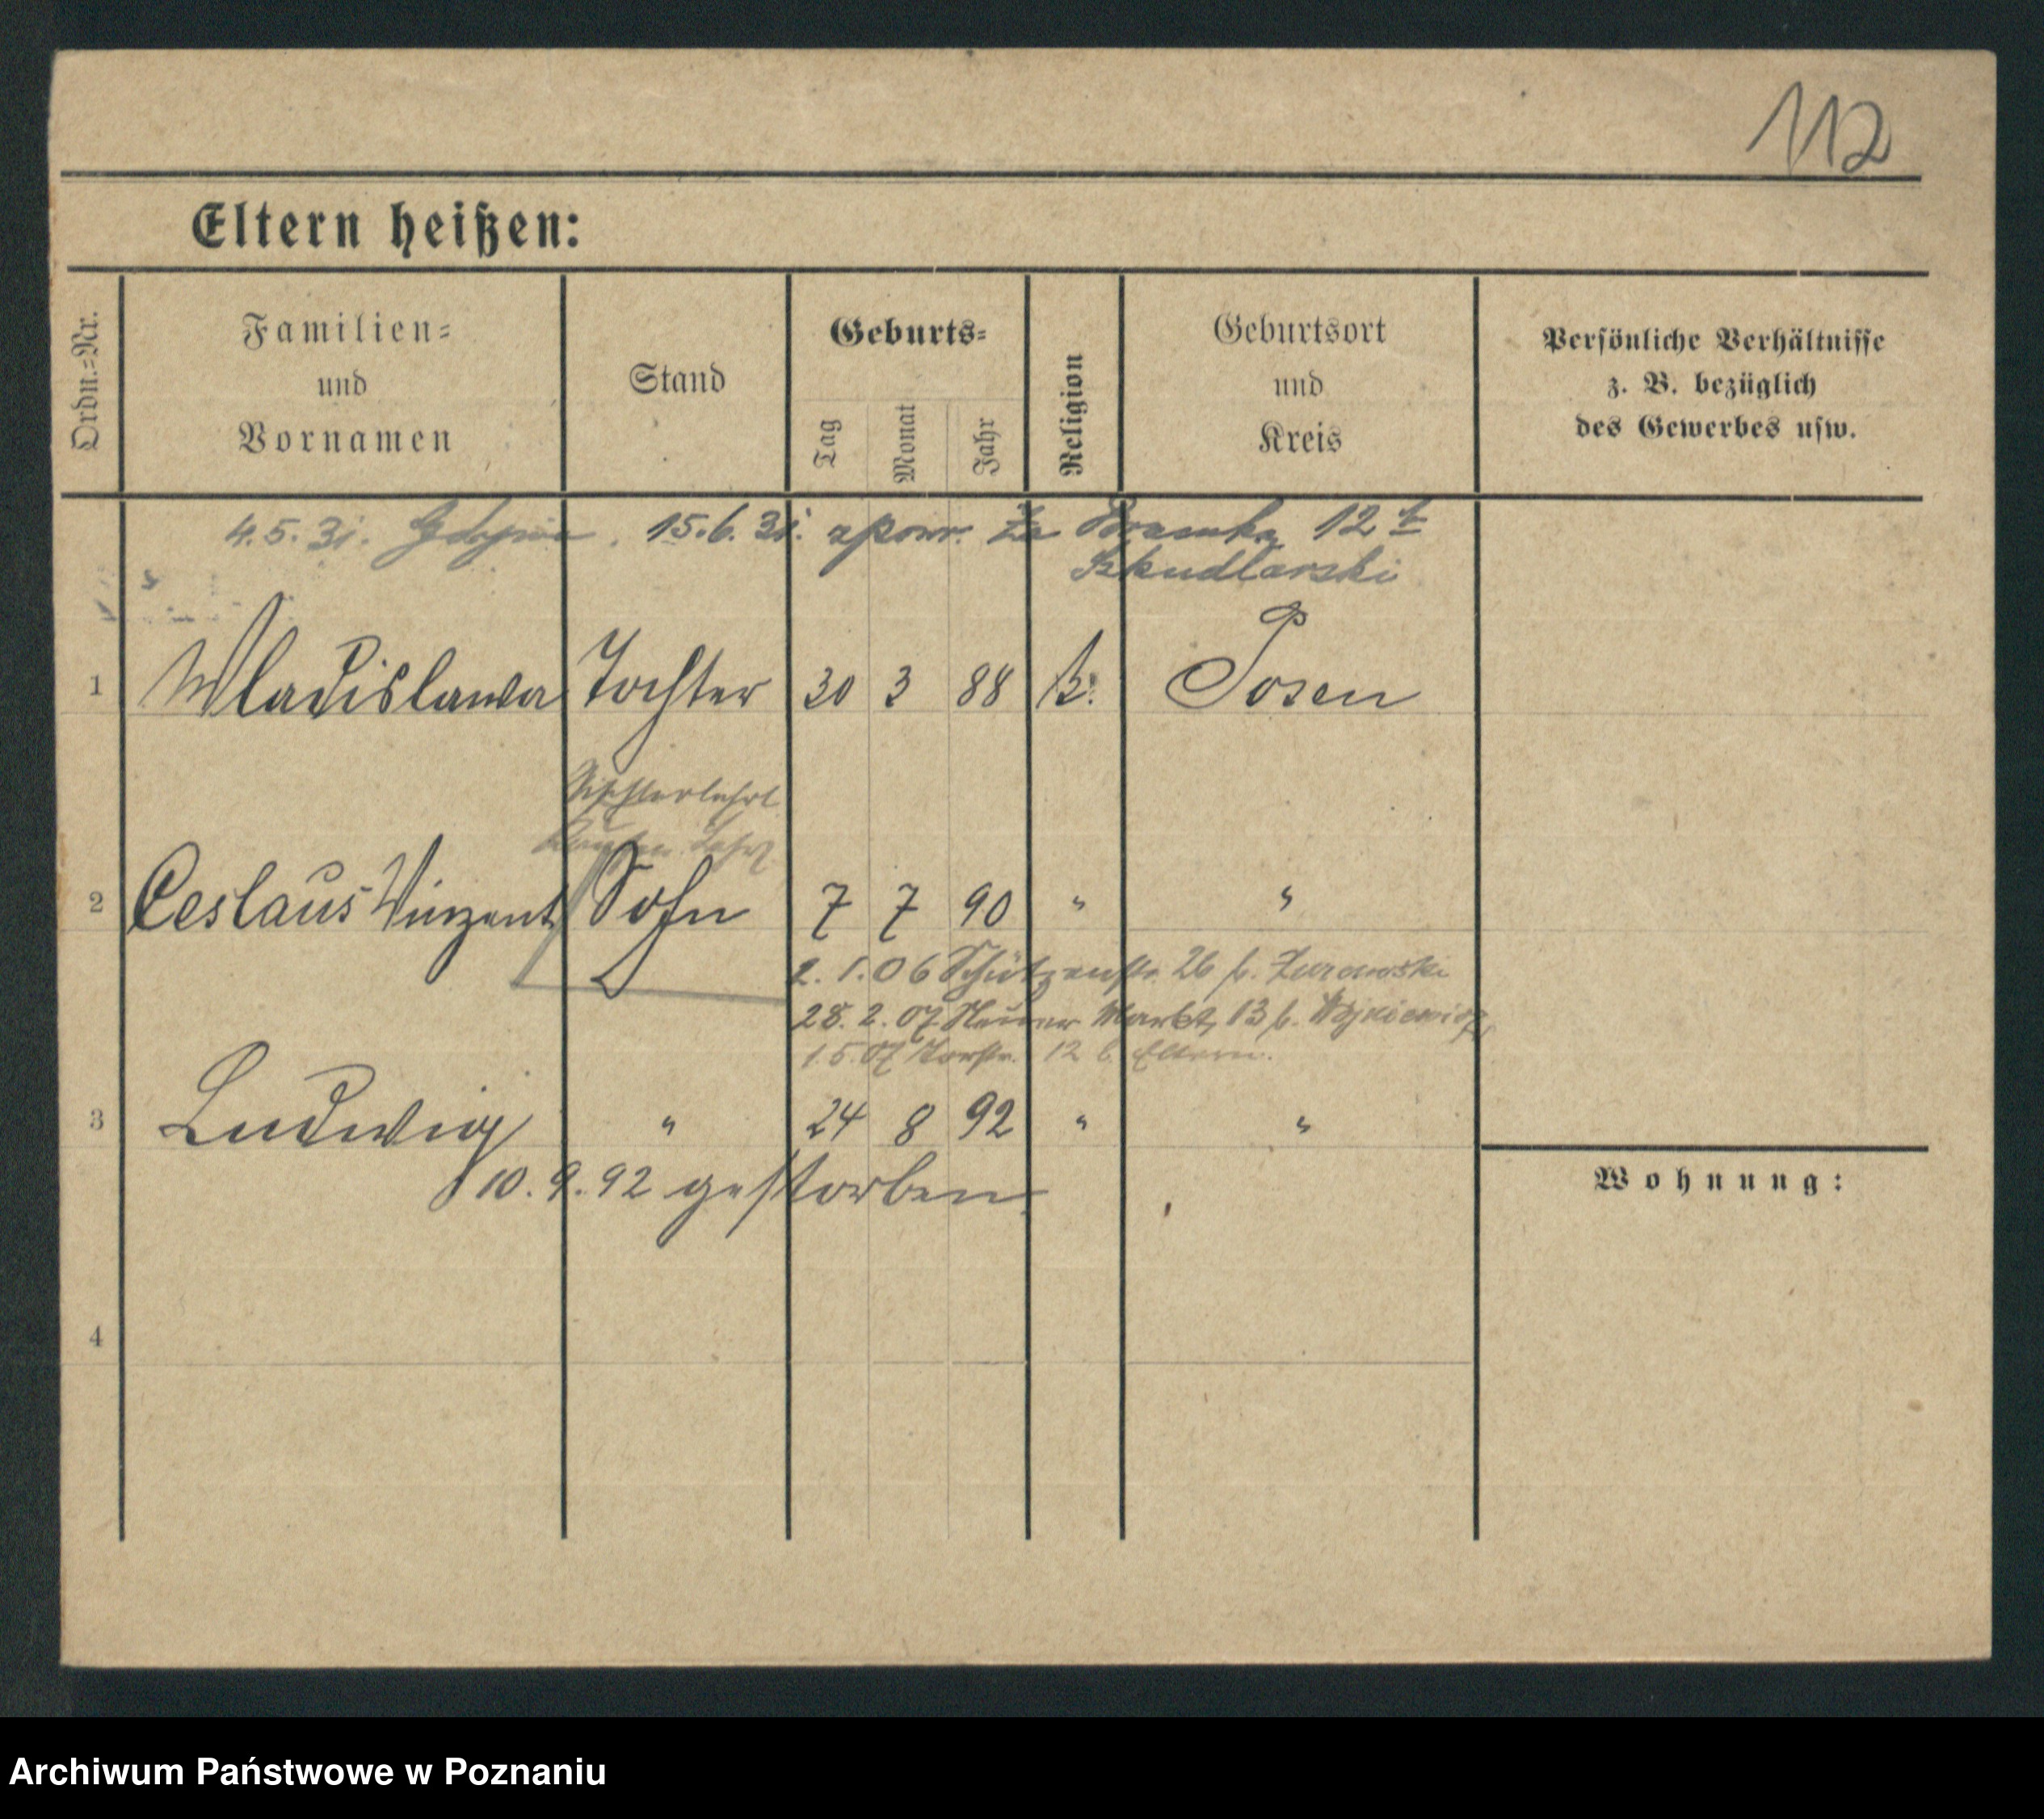 112
Eltern heißen:
Ordn.-Nr.
Familien-
und
Vornamen
Stand
Geburts-
Tag
Monat
Jahr
Religion
Geburtsort
und
Kreis
Persönliche Verhältnisse
z. B. bezüglich
des Gewerbes usw.
4.5.31. Gdynia. 15.6.31. zpowr. Za Bramką 12 b
Szkudlarski
1 Wladislawa Tochter 30 3 88 k. Posen
Tischlerlehrl
2 Ceslaus Vinzent Sohn 7 7 90 " "
2.1.06 Schützenstr. 26 b. Zurawski
28.2.07 Neuer Markt 13 b.
1.5.07 Torstr. 12 b. Eltern.
3 Ludwig " 24 8 92 " "
10.9.92 gestorben.
Wohnung:
4
Archiwum Państwowe w Poznaniu